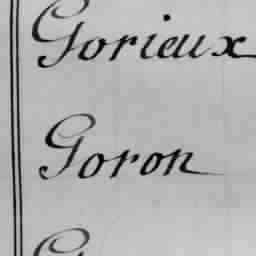 Gorieux
Goron